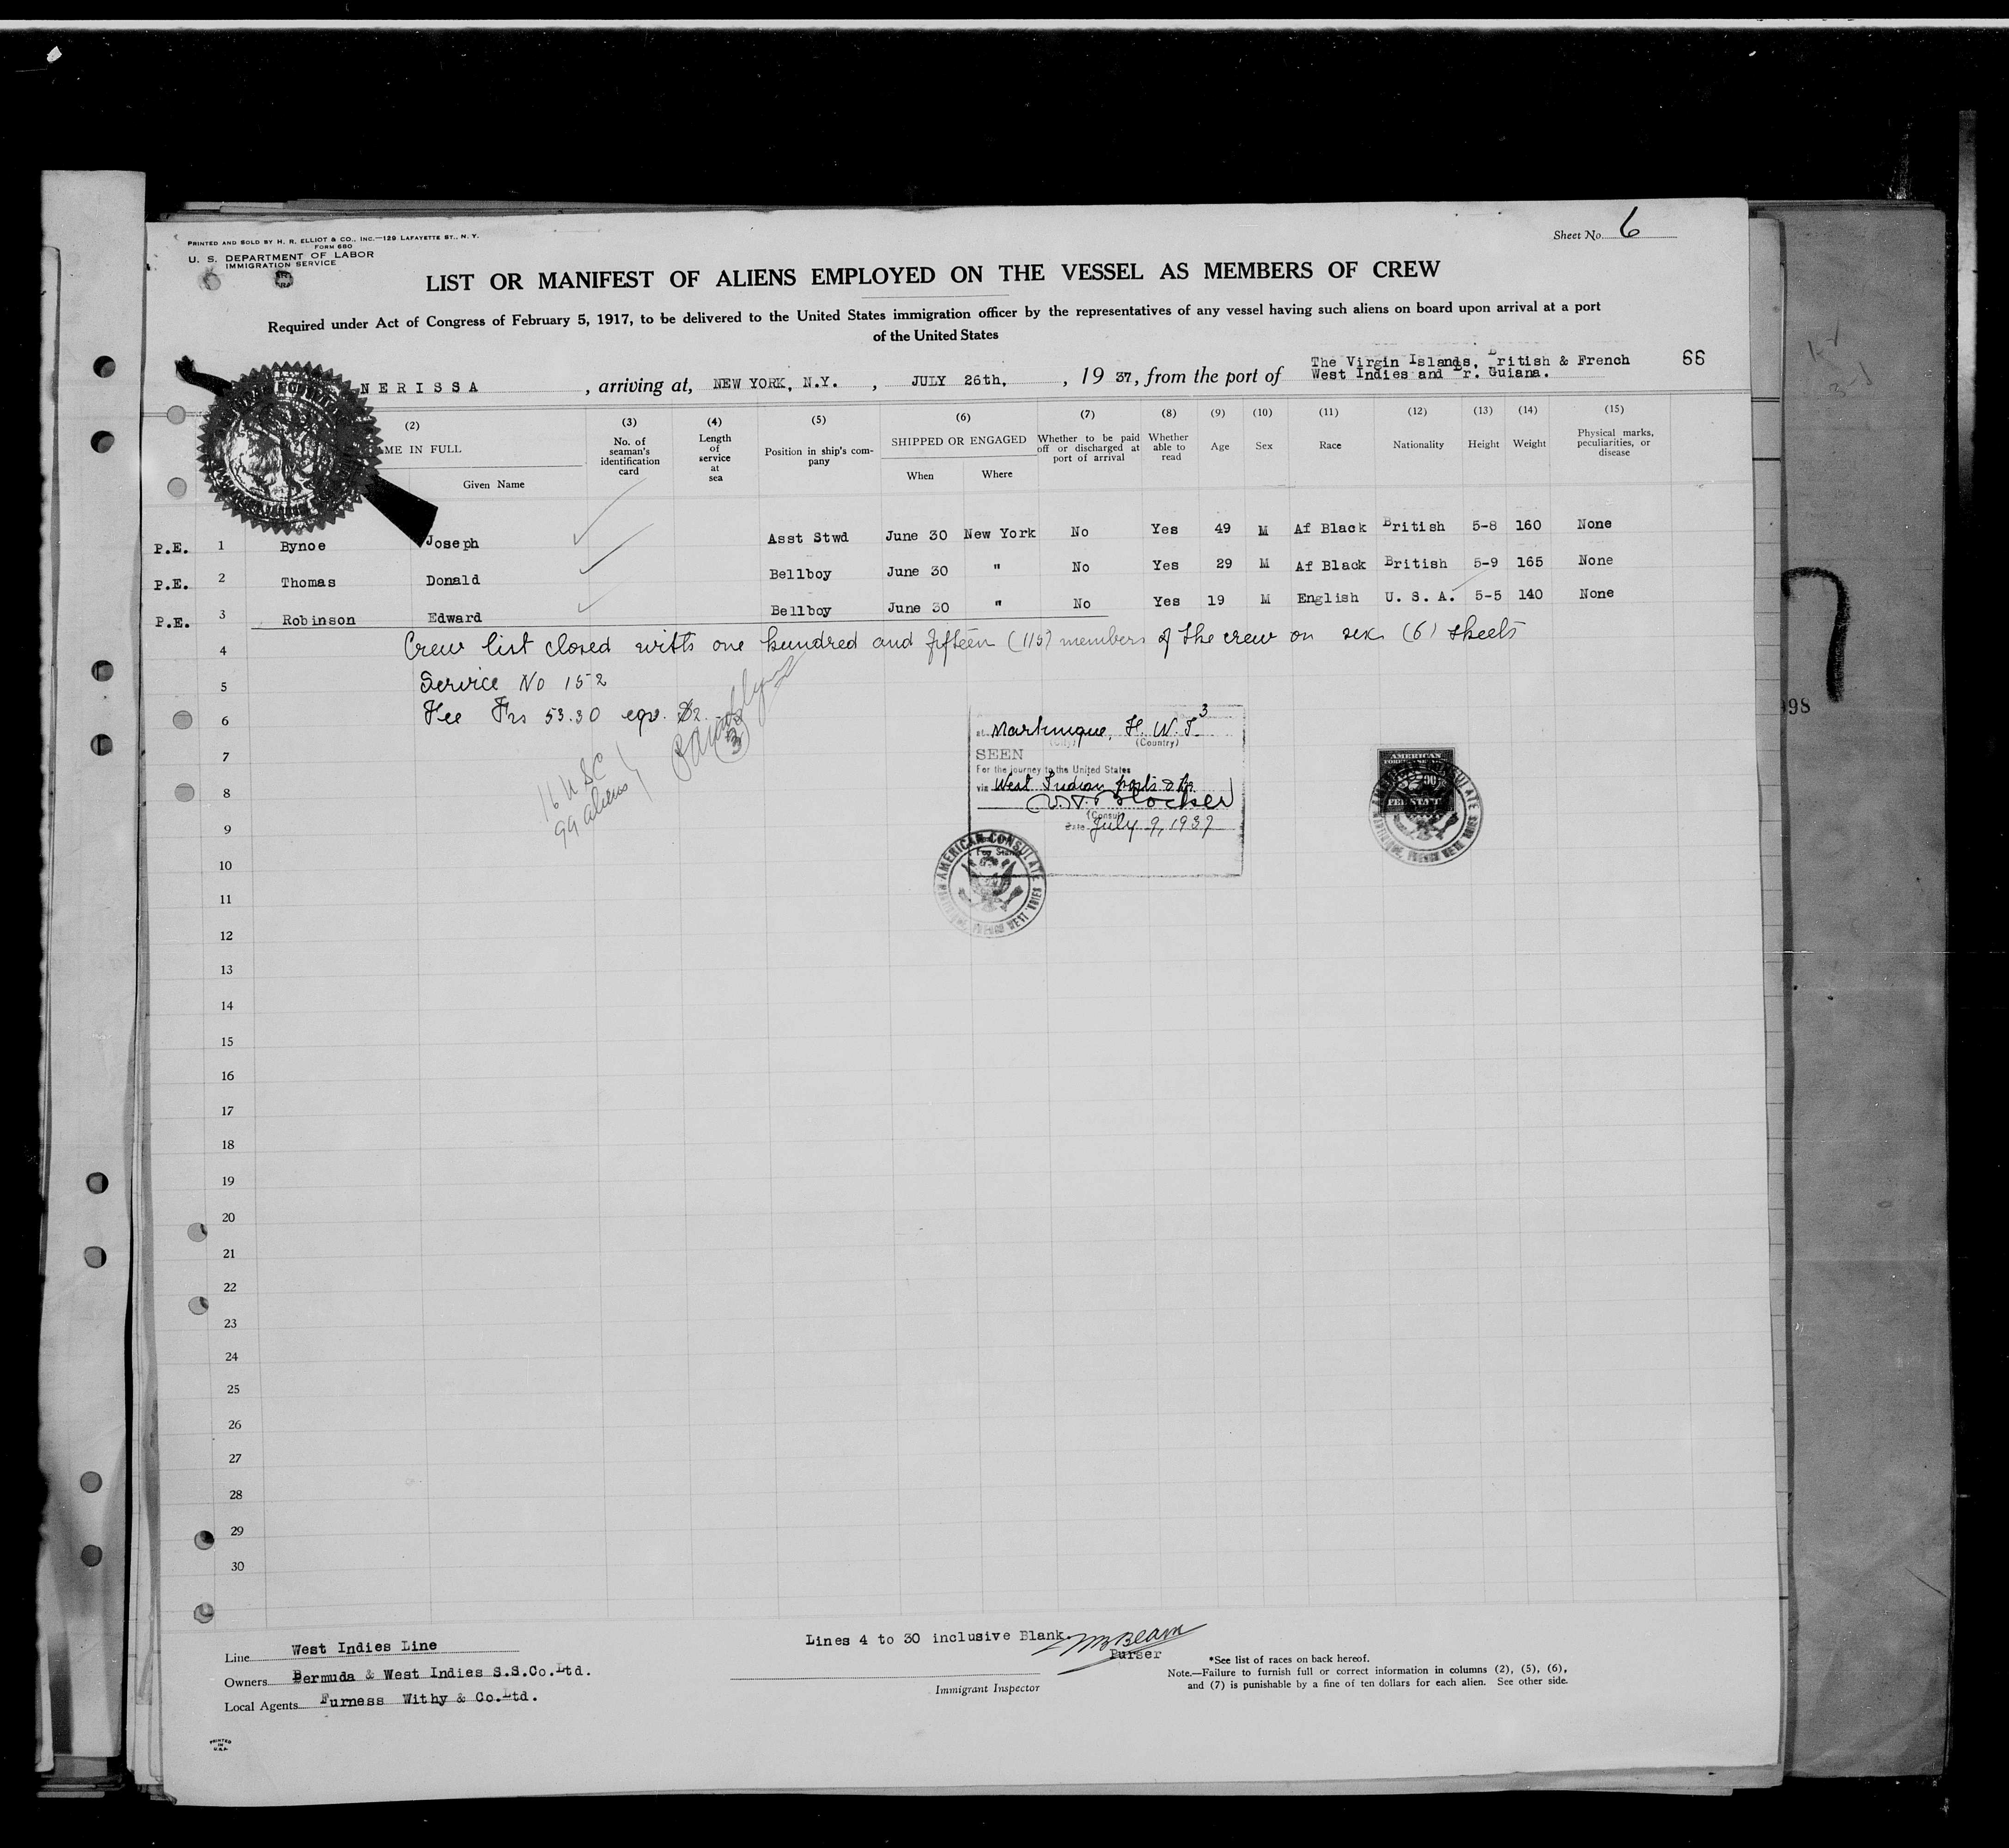 PRINTED AND SOLD BY H. R. ELLIOT & CO., INC.—129 LAFAYETTE ST., N. Y.
FORM 680
U. S. DEPARTMENT OF LABOR
IMMIGRATION SERVICE
Sheet No. 6
LIST OR MANIFEST OF ALIENS EMPLOYED ON THE VESSEL AS MEMBERS OF CREW
Required under Act of Congress of February 5, 1917, to be delivered to the United States immigration officer by the representatives of any vessel having such aliens on board upon arrival at a port
of the United States
NERISSA, arriving at, NEW YORK, N.Y., JULY 26th, , 1937, from the port of The Virgin Islands, British & French
West Indies and Br. Guiana.
66
(2) (3) (4) (5) (6) (7) (8) (9) (10) (11) (12) (13) (14) (15)
ME IN FULL
Given Name
No. of seaman's identification card
Length of service at sea
Position in ship's company
SHIPPED OR ENGAGED
When Where
Whether to be paid off or discharged at port of arrival
Whether able to read
Age
Sex
Race
Nationality
Height
Weight
Physical marks, peculiarities, or disease
P.E. 1 Bynoe Joseph Asst Stwd June 30 New York No Yes 49 M Af Black British 5-8 160 None
P.E. 2 Thomas Donald Bellboy June 30 " No Yes 29 M Af Black British 5-9 165 None
P.E. 3 Robinson Edward Bellboy June 30 " No Yes 19 M English U. S. A. 5-5 140 None
4 Crew list closed with one hundred and fifteen (115) members of the crew on six (6) sheets
5 Service No 152
6 Fee Frs 53.30 eqv. $2
3
at Martinique, F. W. I.
(City) (Country)
7
SEEN
For the journey to the United States
8
via West Indian ports &
(Consul)
9
Date July 9, 1937
16 USC
99 aliens
Fee Stamp
AMERICAN CONSULATE
MARTINIQUE, FRENCH WEST INDIES
AMERICAN
FOREIGN SERVICE
FEE STAMP
AMERICAN CONSULATE
MARTINIQUE, FRENCH WEST INDIES
10
11
12
13
14
15
16
17
18
19
20
21
22
23
24
25
26
27
28
29
30
Lines 4 to 30 inclusive Blank.
Purser
Immigrant Inspector
Line West Indies Line
Owners Bermuda & West Indies S.S.Co.Ltd.
Local Agents Furness Withy & Co.Ltd.
*See list of races on back hereof.
Note.—Failure to furnish full or correct information in columns (2), (5), (6),
and (7) is punishable by a fine of ten dollars for each alien. See other side.
PRINTED
IN
U.S.A.
998